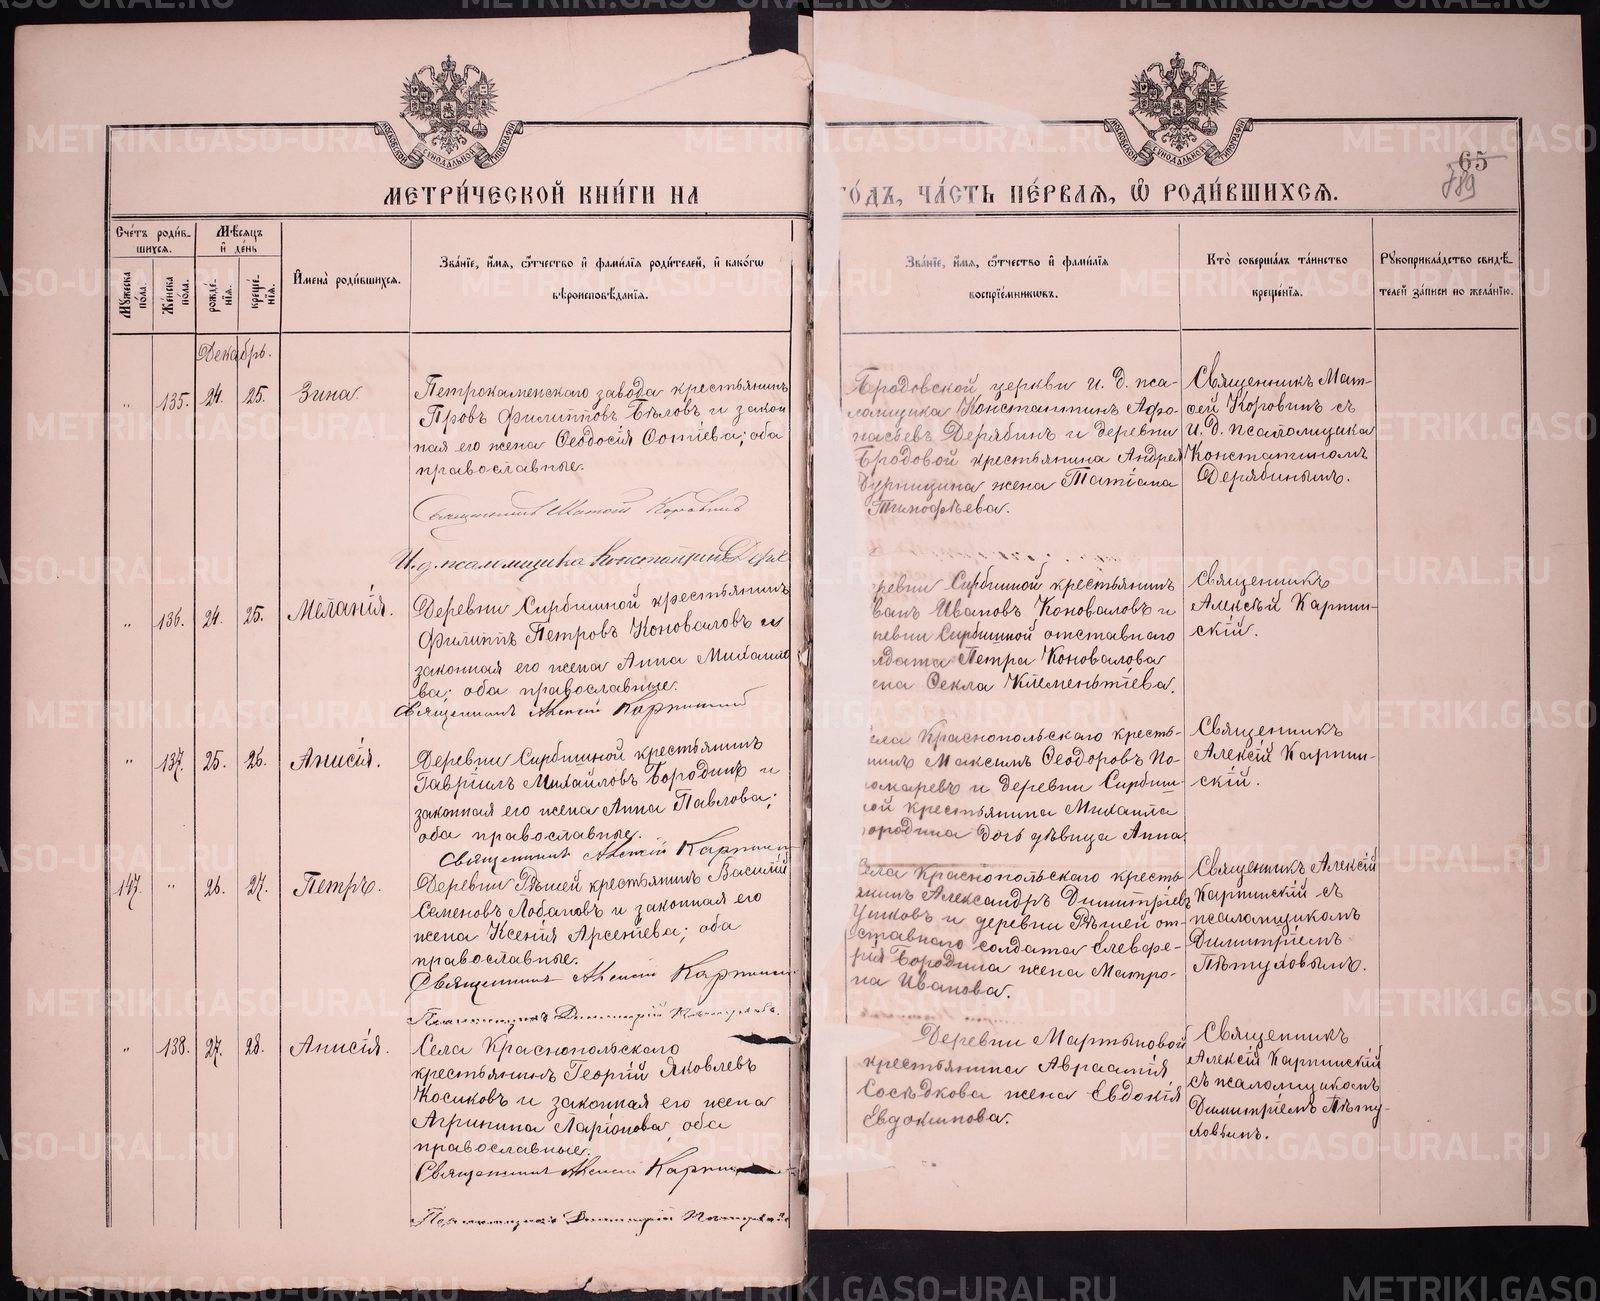 МЕТРИ́ЧЕСКОЙ КНИ́ГИ НА
ГО́ДЪ, ЧА́СТЬ ПЕ́РВАЯ, Ѿ РОДИ́ВШИХСЯ.
65
789
Сче́тъ роди́в-
шихся.
Мѣ́сяцъ
и҆ де́нь
Му́жеска
по́ла.
Же́нска
по́ла.
рожде́-
нїя.
креще́-
нїя.
И҆мена̀ роди́вшихся.
Зва́нїе, и҆́мя, ѻ҆́тчество и҆ фами́лїя роди́телей, и҆ како́гѡ
вѣроисповѣ́данїя.
Зва́нїе, и҆́мя, ѻ҆́тчество и҆ фами́лїя
воспрїе́мникѡвъ.
Кто̀ соверша́лъ та́инство
креще́нїя.
Рꙋкоприкла́дство свидѣ́-
телей за́писи по жела́нїю.
Декабрь.
„ 135. 24. 25. Зина
Петрокаменскаго завода крестьянинъ
Провъ Филипповъ Бѣловъ и закон
ная его жена Ѳеодосія Сотіева; оба
православные.
Священникъ Матѳей Коровинъ
И. д. псаломщика Константинъ Деря
Бродовской церкви И. Д. пса-
ломщика Константинъ Афо-
насьевъ Дерябинъ и деревни
Бродовой крестьянина Андрея
жена Татіана
Тимофѣева.
Священникъ Мат-
ѳей Коровинъ съ
И. Д. псаломщика
Константиномъ
Дерябинымъ.
„ 136. 24. 25. Меланія.
Деревни Сирбишной крестьянинъ
Филиппъ Петровъ Коноваловъ и
законная его жена Анна Михаило
ва; оба православные.
Священникъ Алексій Карпинскій
ревни Сирбишной крестьянинъ
ванъ Ивановъ Коноваловъ и
ревни Сирбишной отставнаго
лдата Петра Коновалова
ена Ѳекла Клеменьтіева.
Священникъ
Алексѣй Карпин-
скій.
„ 137. 25. 26. Анисія.
Деревни Сирбишной крестьянинъ
Гавріилъ Михайловъ Бородинъ и
законная его жена Анна Павлова;
оба православные.
Священникъ Алексій Карпин
ела Краснопольскаго кресть-
нинъ Максимъ Ѳеодоровъ По-
номаревъ и деревни Сирбиш-
ной крестьянина Михаила
ородина дочь дѣвица Анна.
Священникъ
Алексій Карпин-
скій.
147. „ 26. 27. Петръ.
Деревни Рѣшей крестьянинъ Василій
Семеновъ Лобановъ и законная его
жена Ксенія Арсентіева; оба
православные.
Священникъ Алексій Карпин
Псаломщикъ Димитрій Пѣтуховъ.
Села Краснопольскаго кресть
янинъ Александръ Димитріевъ
Ушковъ и деревни Рѣшей от-
ставнаго солдата Елевфе-
рія Бородина жена Матро-
на Иванова.
Священникъ Алексій
Карпинскій съ
псаломщикомъ
Димитріемъ
Пѣтуховымъ.
„ 138. 27. 28. Анисія.
Села Краснопольскаго
крестьянинъ Георгій Яковлевъ
Косиковъ и законная его жена
Агрипина Ларіонова оба
православные.
Священникъ Алексій Карпин
Псаломщикъ Димитрій Пѣтуховъ
Деревни Мартыновой
крестьянина Авраамія
Сосѣдкова жена Евдокія
Евдокимова.
Священникъ
Алексій Карпинскій
съ псаломщикомъ
Димитріемъ Пѣту-
ховымъ.
METRIKI.GASO-URAL.RU